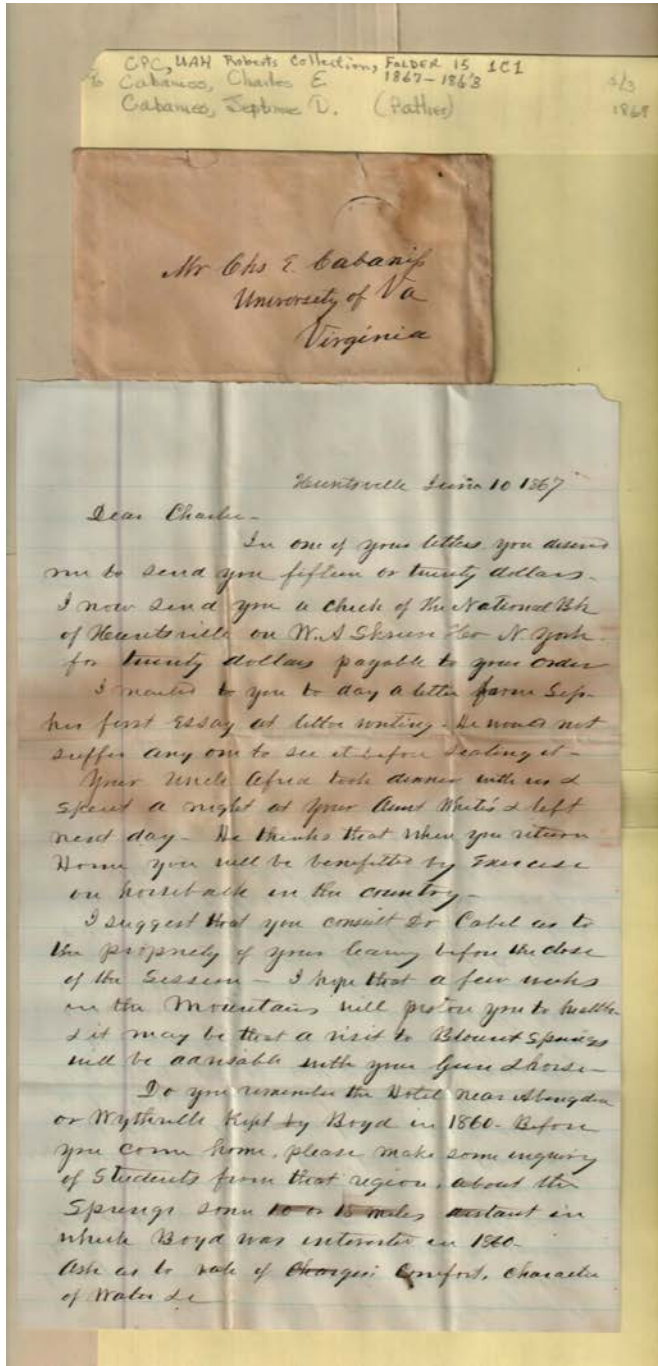 CPC, UAH Roberts Collection, FOLDER 15 1C1
to Cabaniss, Charles E 1867-1868
Cabaniss, Septimus D. (Father)
1868
Mr Chs E. Cabaniss
University of Va
Virginia
Huntsville June 10 1867
Dear Charlie-
In one of your letters you desired
me to send you fifteen or twenty dollars-
I now send you a check of the National Bk
of Huntsville on W. A & Co N York-
for twenty dollars payable to your order
I mailed to you to day a letter from Sep-
his first Essay at letter writing- He would not
suffer any one to see it before sealing it-
Your Uncle Alfred took dinner with us &
spent a night at your Aunt White's & left
next day- He thinks that when you return
Home you will be benefitted by Exercise
on horseback in the country-
I suggest that you consult Dr Cabel as to
the propriety of your leaving before the close
of the Session- I hope that a few weeks
in the Mountains will restore you to health
& it may be that a visit to Blount Springs
will be advisable with your Gun & horse-
Do you remember the Hotel near Abingdon
or Wytheville kept by Boyd in 1860- Before
you come home, please make some inquiry
of Students from that region, about the
Springs some 10 or 15 miles distant in
which Boyd was interested in 1860-
Ask as to rate of Charges: Comfort, character
of Water &c